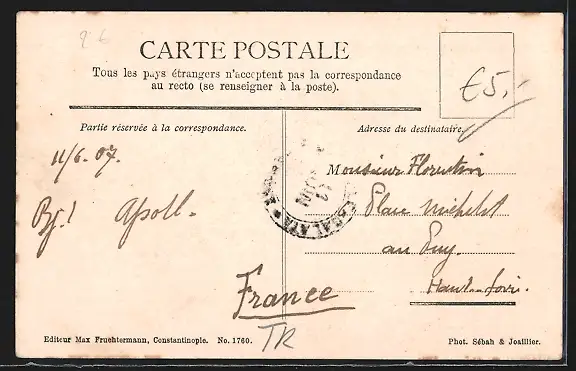 26
CARTE POSTALE
Tous les pays étrangers n'acceptent pas la correspondance
au recto (se renseigner à la poste).
€5,-
Partie réservée à la correspondance.
Adresse du destinataire.
11/6.07.
Monsieur Florentin
Place Michelet
au Puy.
Haute-Loire.
France
TR
GALATA
Editeur Max Fruchtermann, Constantinople. No. 1760.
Phot. Sébah & Joaillier.